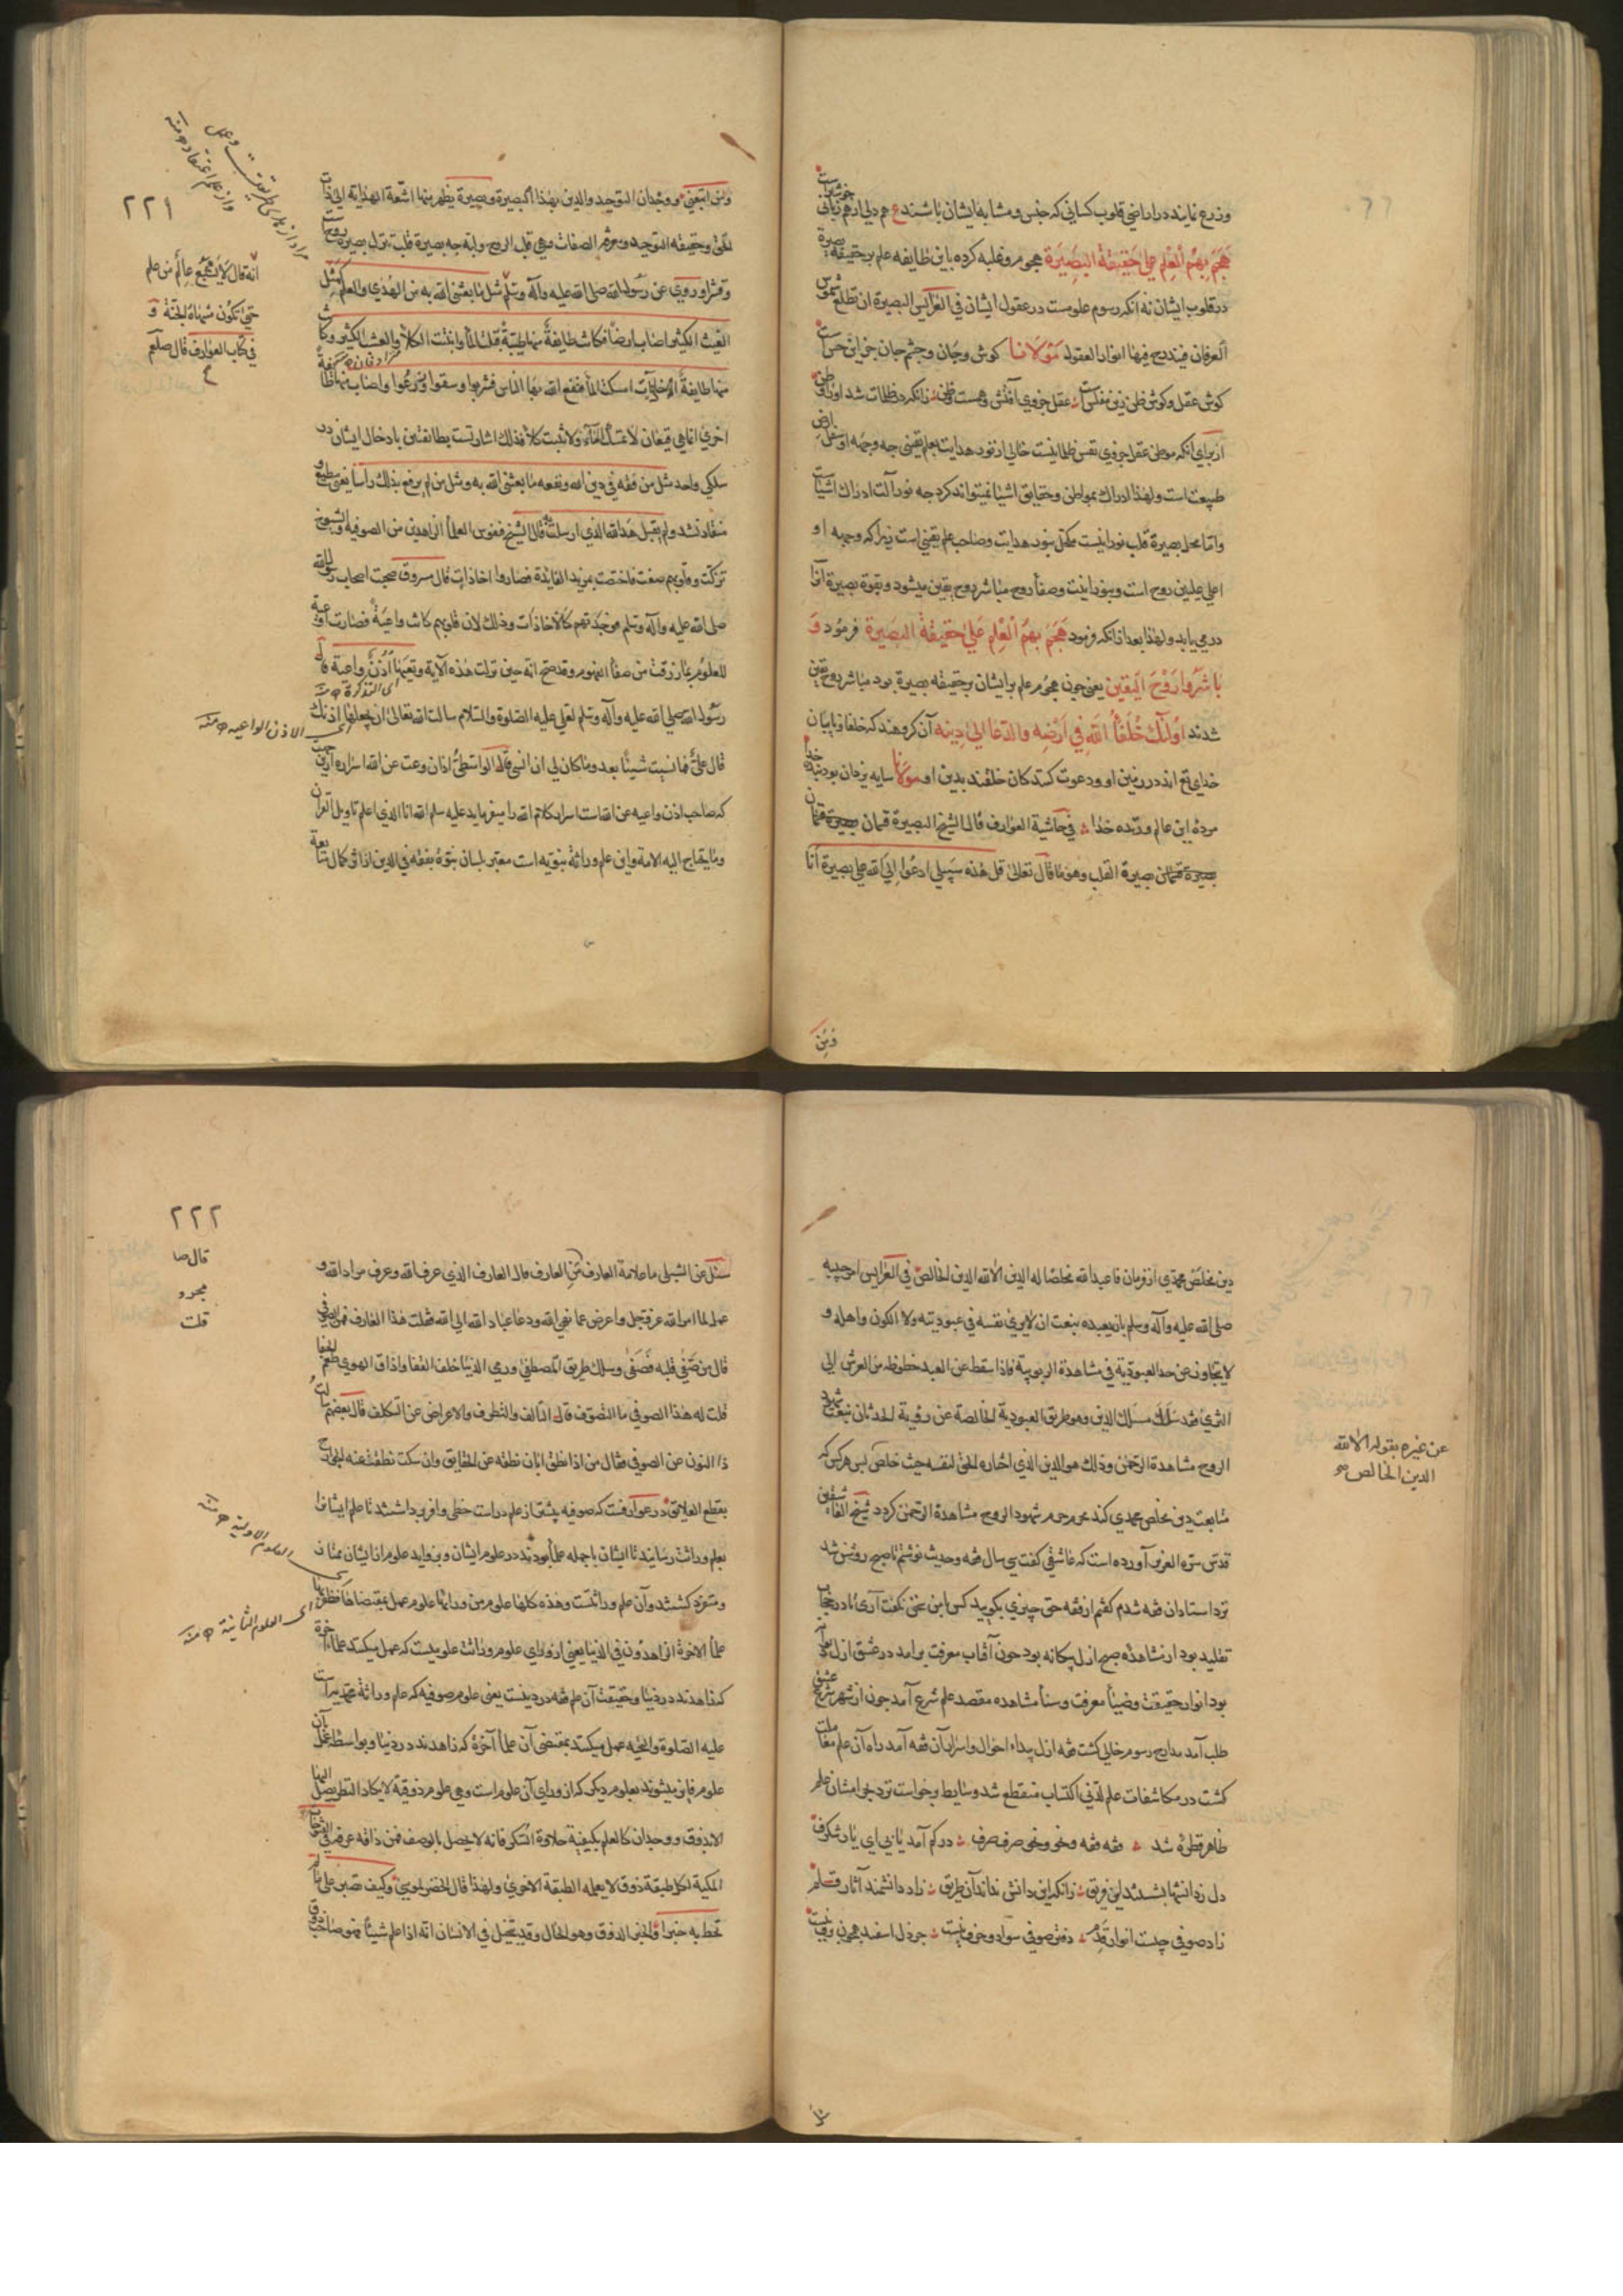 وزرع نمایند در اراضی قلوب کسانی که جنس و مشابه ایشان باشند ع هم دلی از هم زبانی خوشترست
هَجَمَ بِهِمُ الْعِلْمِ عَلیٰ حَقِیقَةِ الْبَصِیرَةِ هجوم و غلبه کرده باین طایفه علم بر حقیقة بصیرة
در قلوب ایشان نه آنکه رسوم علومست در عقول ایشان فی العرایس البصیرة ان تطلع شموس
العرفان فیندرج فیها انوار العقول مَوْلَانَا کوش و جان و چشم جان جز این حس است
کوش عقل و کوش ظن زین مفلس است عقل جزوی آفتش وهمست و ظن زانکه در ظلمات شد او را وطن
از برای آنکه موطن عقل جزوی نفس ظلمانیست خالی از نور هدایت بعلم یقینی چه وجهه او سفل ارض
طبیعت است ولهذا ادراک بمواطن و حقایق اشیا نمیتواند کرد چه نور آلت ادراک اشیاست
واما محل بصیرة قلب نورانیست مکحل بنور هدایت وصاحب علم یقینی است زیرا که وجهه او
اعلی علیین روح است وبنورانیت وصفأ روح مباشر روح یقین میشود وبقوة بصیرة آنرا
در می یابد ولهذا بعد از آنکه فرمود هَجَمَ بِهِمُ الْعِلْمِ عَلیٰ حَقِیقَةِ الْبَصِیرَةِ فرمُود وَ
بَاشَرُوا رَوْحَ الْیَقِین یعنی چون هجوم علم بر ایشان بر حقیقه بصیرة بود مباشر روح یقین
شدند اُولٰئِكَ خُلَفَأُ اللهِ فِی اَرْضِهِ وَالدُّعَا اِلیٰ دِینِه آن کروهند که خلفا و نایبان
خدای تع اند در زمین او ودعوت کنندکان خلقند بدین او مولانا سایه یزدان بود بندهٔ خدا
مردهٔ این عالم و زندهٔ خدا فی حاشیة العوارف قال الشیخ البصیرة قسمان
بصیرة القلب وهو ما قال تعالی قل هٰذه سبیلی ادعُوا اِلی الله علی بصیرة اَنا
ومن
٢٢١
ومن اتبعنی ووجدان التوحید والدین بهذا البصیرة وبصیرة یظهر منها اشعة الهدایة الی ذات
صلی الله علیه وآله وسلم
انه قال لا یشبع عالم من علم
حتی تکون منتهاه الجنة و
فی کتاب العوارف قال صلعم
وقشر وروی عن رسول الله صلی الله علیه وآله وسلم مثل ما بعثنی الله به من الهُدٰی والعلم کمثل
الغیث الکثیر اصاب ارضاً فکانت طایفةً منها طیبةً قبلت المأ وانبتت الکلأ والعشب الکثیر وکانت
منها طایفةً اخاذات امسکت المأ فنفع الله بها الناس فشربوا وسقوا وزرعُوا واصاب منها طایفةً
اخریٰ انما هی قیعان لا تمسك المآء ولا تنبت کلأ فذلك اشارتست بطائفتین بادخال ایشان در
سلکی واحد مثل من فقه فی دین الله ونفعه ما بعثنی الله به ومثل من لم یرفع بذلك رأسا یعنی مطیع و
منقاد نشد ولم یقبل هدالله الذی ارسلت به قال الشیخ فنفوس العلمأ الزاهدین من الصوفیة والشیوخ
تزکت وقلوبهم صفت فاختصت بمزید الفائدة فصاروا اخاذات قال مسروق صحبت اصحاب رسول الله
صلی الله علیه وآله وسلم فوجدتهم کالاخاذات وذلك لان قلوبهم کانت واعیةً فصارت اوعیة
للعلوم بما رزقت من صفأ الفهوم وقد صح انه حین نزلت هذه الآیة وتعیها اُذُنٌ واعیة قال
رسول الله صلی الله علیه وآله وسلم لعلی علیه الصلوة والسلام سالت الله تعالیٰ ان یجعلها اذنك
ای الاذن الواعیه ١٢ منه
قال علیٌّ فما نسیت شیئاً بعد وما کان لی ان انسی قال الواسطیُّ اذان وعت عن الله اسراره ازین جهت
که صاحب اذن واعیه عن الله است اسرار کلام الله را میفرماید علیه سلم الله انا الذی اعلم تاویل القران
وما یحتاج الیه الامة واین علم وراثة نبویه است معتبر بلسان نبوة بفقه فی الدین اذا ثر کمال متابعة
دین مخلَص محمدی از فرمان فاعبد الله مخلصًا له الدین الا لله الدین الخالص فی العرایس امر حبیبه
صلی الله علیه وآله وسلم بان یعبده بنعت ان لا یریٰ نفسه فی عبودیته ولا الکون واهله و
لا یتجاوز عن حد العبودیة فی مشاهدة الربوبیة فاذا سقط عن العبد حظوظه من العرش الی
الثریٰ فقد سَلَكَ مسلك الدین وهو طریق العبودیة الخالصة عن رؤیة الحدثان بنعت شهود
الروح مشاهدة الرحمٰن وذلك هو الدین الذی اختاره الحق لنفسه حیث خلص پس هرکس که
عن غیره بقوله الا لله
الدین الخالص صح
متابعت دین مخلص محمدی کند محرم شهود الروح مشاهدة الرحمٰن کردد شیخ العاشقین
قدس سره العزیز آورده است که عاشقی کفت سی سال فقه وحدیث نوشتم تا صبح روشن شد
نزد استادان فقه شدم کفتم از فقه حق چیزی بکویید کس این سخن نکفت آری تا در حجاب
تقلید بود از مشاهده صبح ازل بیکانه بود چون آفتاب معرفت برامد در عشق ازل
بود انوار حقیقت وضیأ معرفت وسنأ مشاهده مقصد علم شرع آمد چون از شهر شرع عشق
طلب آمد مدارج رسوم خالی کشت فقه ازل بیداء احوال واسرار آن فقه آمد راه آن علم مقامات
کشت در مکاشفات علم لدنی اکتساب منقطع شد وسایط برخواست نزد بحرامشان علم
ظاهر قطرهٔ شد فقه فقه ونحو ونحو صرف صرف در کم آمد یابی ای یار شکرف
دل ز دانشها بشستند این فریق زانکه این دانش نداند آن طریق زاد دانشمند آثار قلم
زاد صوفی چیست انوار قدم دفتر صوفی سواد وحرف نیست جز دل اسفید همچون برف نیست
٢٢٢
قال صا
مجرد
قلت
سئل عن الشبلی ما علامة العارف من العارف قال العارف الذی عرف الله وعرف مراد الله و
عمل لما امر الله عز وجل واعرض عما نهی الله ودعا عباد الله الی الله فقلت هذا العارف فمن الصوفی
قال من صَفّٰی قلبه فَصَفٰی وسلك طریق المصطفیٰ ورمی الدنیا خلف القفا واذاق الهوی طعم الجفا
قلت له هذا الصوفی ما التصوف قال التالف والتطرف والاعراض عن التکلف قال بعضهم سالتُ
ذا النون عن الصوفی فقال من اذا نطق ابان نطقه عن الحقایق وان سکت نطقت عنه الجوارح
بقطع العلایق در عوارفست که صوفیه پیشتر از علم دراست حظی وافر برداشتند تا علم ایشانرا
بعلم وراثت رسانید تا ایشان با جمله علمأ بودند در علوم ایشان وبزواید علوم از ایشان ممتاز
ای العلوم الاولیة ١٢ منه
ومتفرد کشتند وآن علم وراثتست وهذه کلها علوم من ورائها علوم عمل بمقتضاها وظفر بها
ای العلوم الثانیة ١٢ منه
علمأ الاخرة الزاهدون فی الدنیا یعنی از ورای علوم وراثت علومیست که عمل میکنند علماء آخرة
که زاهدند در دنیا وحقیقت آن علم فقه در دینست یعنی علوم صوفیه که علم وراثة محمدیست
علیه الصلوة والتحیة عمل میکنند بمقتضی آن علمأ آخرة که زاهدند در دنیا وبواسطه عمل بآن
علوم فایز میشوند بعلوم دیکر که از ورای آن علوم است وهی علوم ذوقیة لا یکاد النظر یصل الیها
الا بذوق ووجدان کالعلم بکیفیة حلاوة السکر فانه لا یحصل بالوصف فمن ذاقه عرفه فی الفتوحات
المکیة لکل طبقة ذوق لا یعلمه الطبقة الاخریٰ ولهذا قال الخضر لموسی وکیف تصبر علی ما لم
تحط به خبرا والخبر الذوق وهو الحال وقد یتخیل فی الانسان انه اذا علم شیئا فهو صاحب ذوق